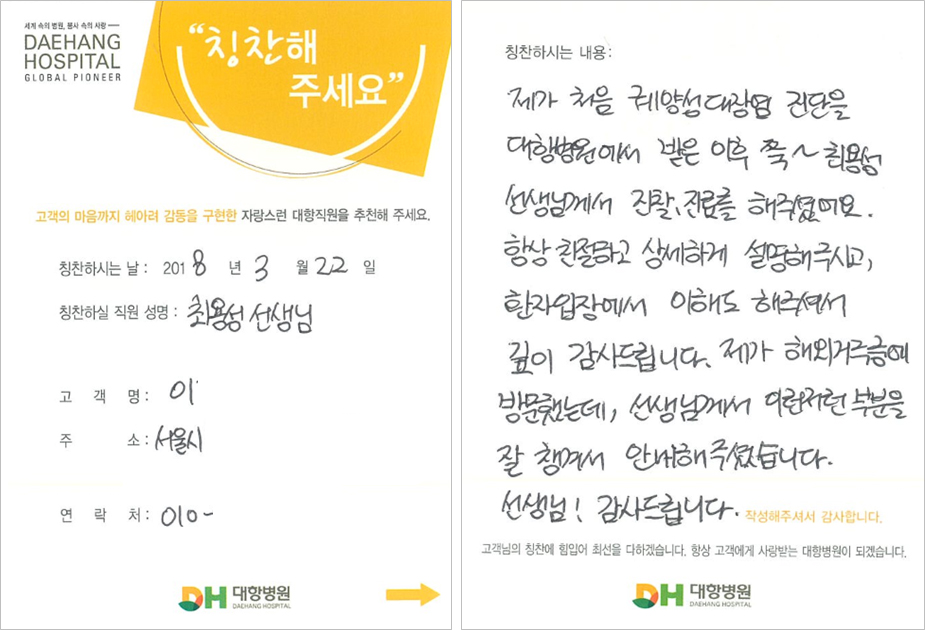 세계 속의 병원, 봉사 속의 사랑
DAEHANG
HOSPITAL
GLOBAL PIONEER
“칭찬해
주세요”
고객의 마음까지 헤아려 감동을 구현한 자랑스런 대항직원을 추천해 주세요.
칭찬하시는 날 : 2018 년 3 월 22 일
칭찬하실 직원 성명 : 최용성 선생님
고 객 명 : 이
주 소 : 서울시
연 락 처 : 010-
DH 대항병원
DAEHANG HOSPITAL
칭찬하시는 내용 :
제가 처음 궤양성대장염 진단을
대항병원에서 받은 이후 쭉~ 최용성
선생님께서 진찰、진료를 해주셨어요.
항상 친절하고 상세하게 설명해주시고,
환자입장에서 이해도 해주셔서
깊이 감사드립니다. 제가 해외거주중에
방문했는데, 선생님께서 이런저런 부분을
잘 챙겨서 안내해주셨습니다.
선생님! 감사드립니다.
작성해주셔서 감사합니다.
고객님의 칭찬에 힘입어 최선을 다하겠습니다. 항상 고객에게 사랑받는 대항병원이 되겠습니다.
DH 대항병원
DAEHANG HOSPITAL